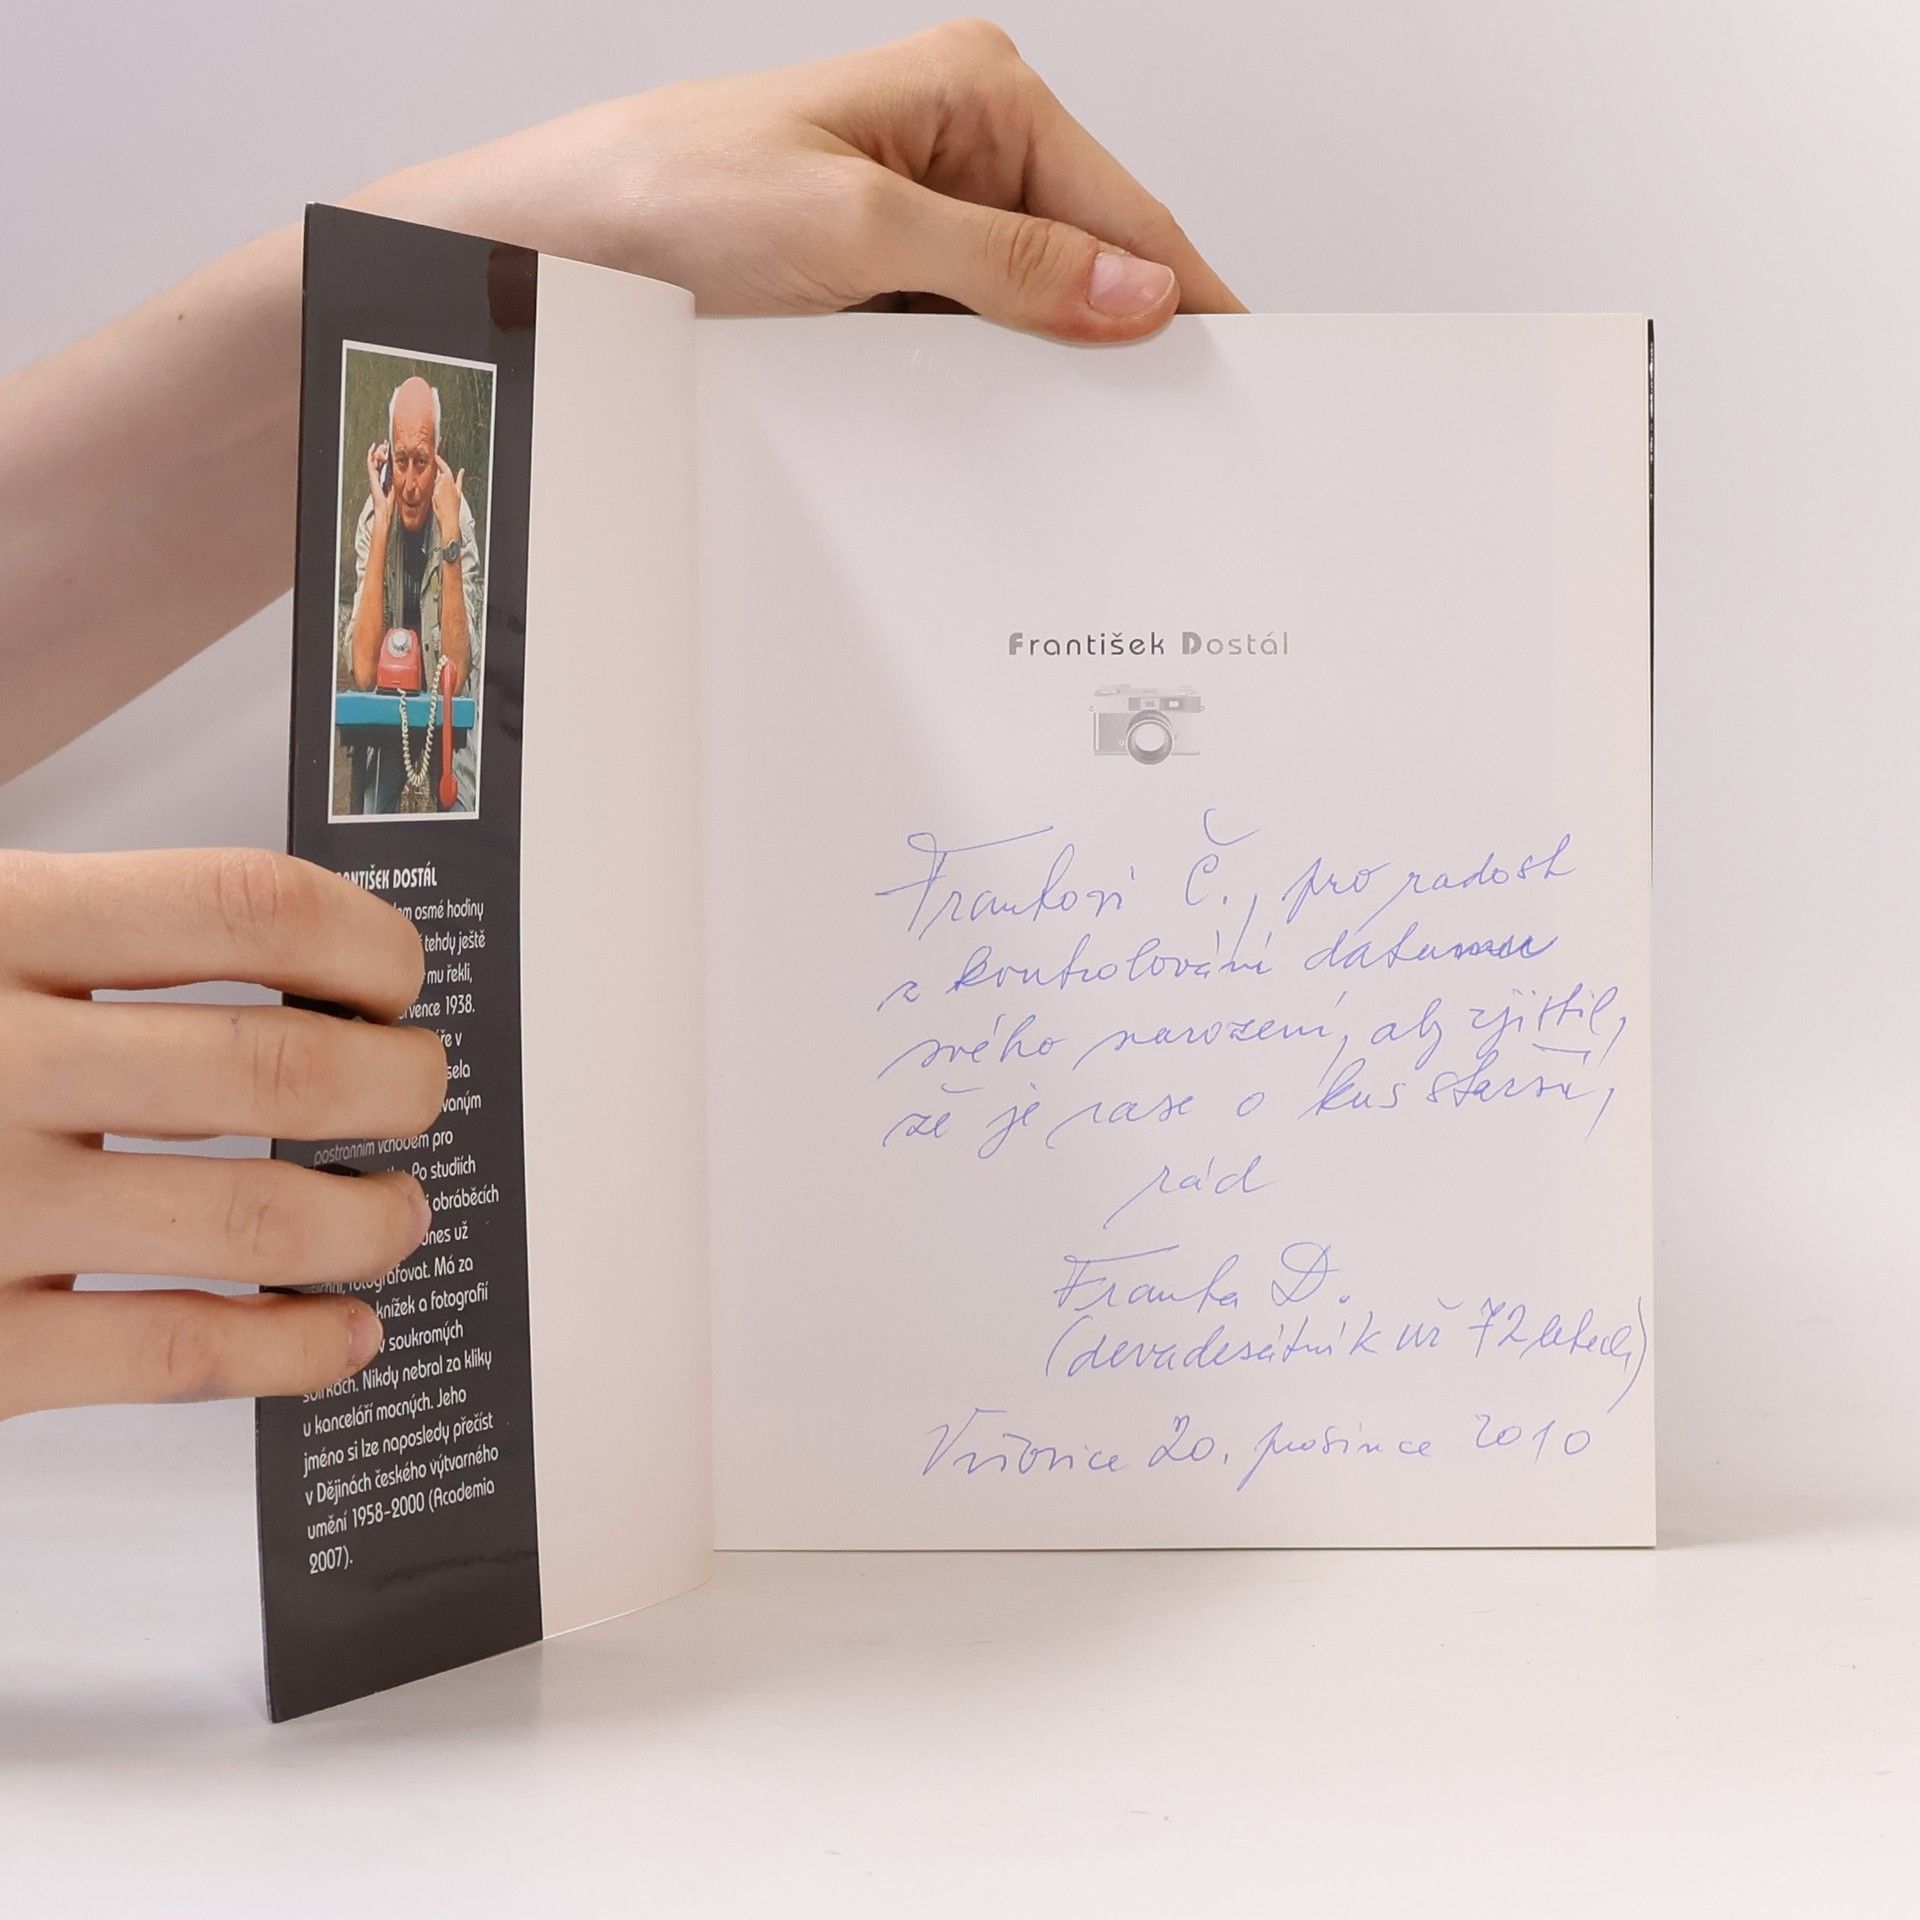 FRANTIŠEK DOSTÁL
osmé hodiny
tehdy ještě
mu řekli,
1938.
v
pro
Po studiích
obráběcích
už
fotografovat. Má za
knížek a fotografií
v soukromých
sbírkách. Nikdy nebral za kliky
u kanceláří mocných. Jeho
jméno si lze naposledy přečíst
v Dějinách českého výtvarného
umění 1958-2000 (Academia
2007).
František Dostál
Frankovi Č., pro radost
z kontrolování datumu
svého narození, aby zjistil,
že je zase o kus starší,
rád
Franta D.
(devadesátník už 72 letech)
Vršovice 20. prosince 2010